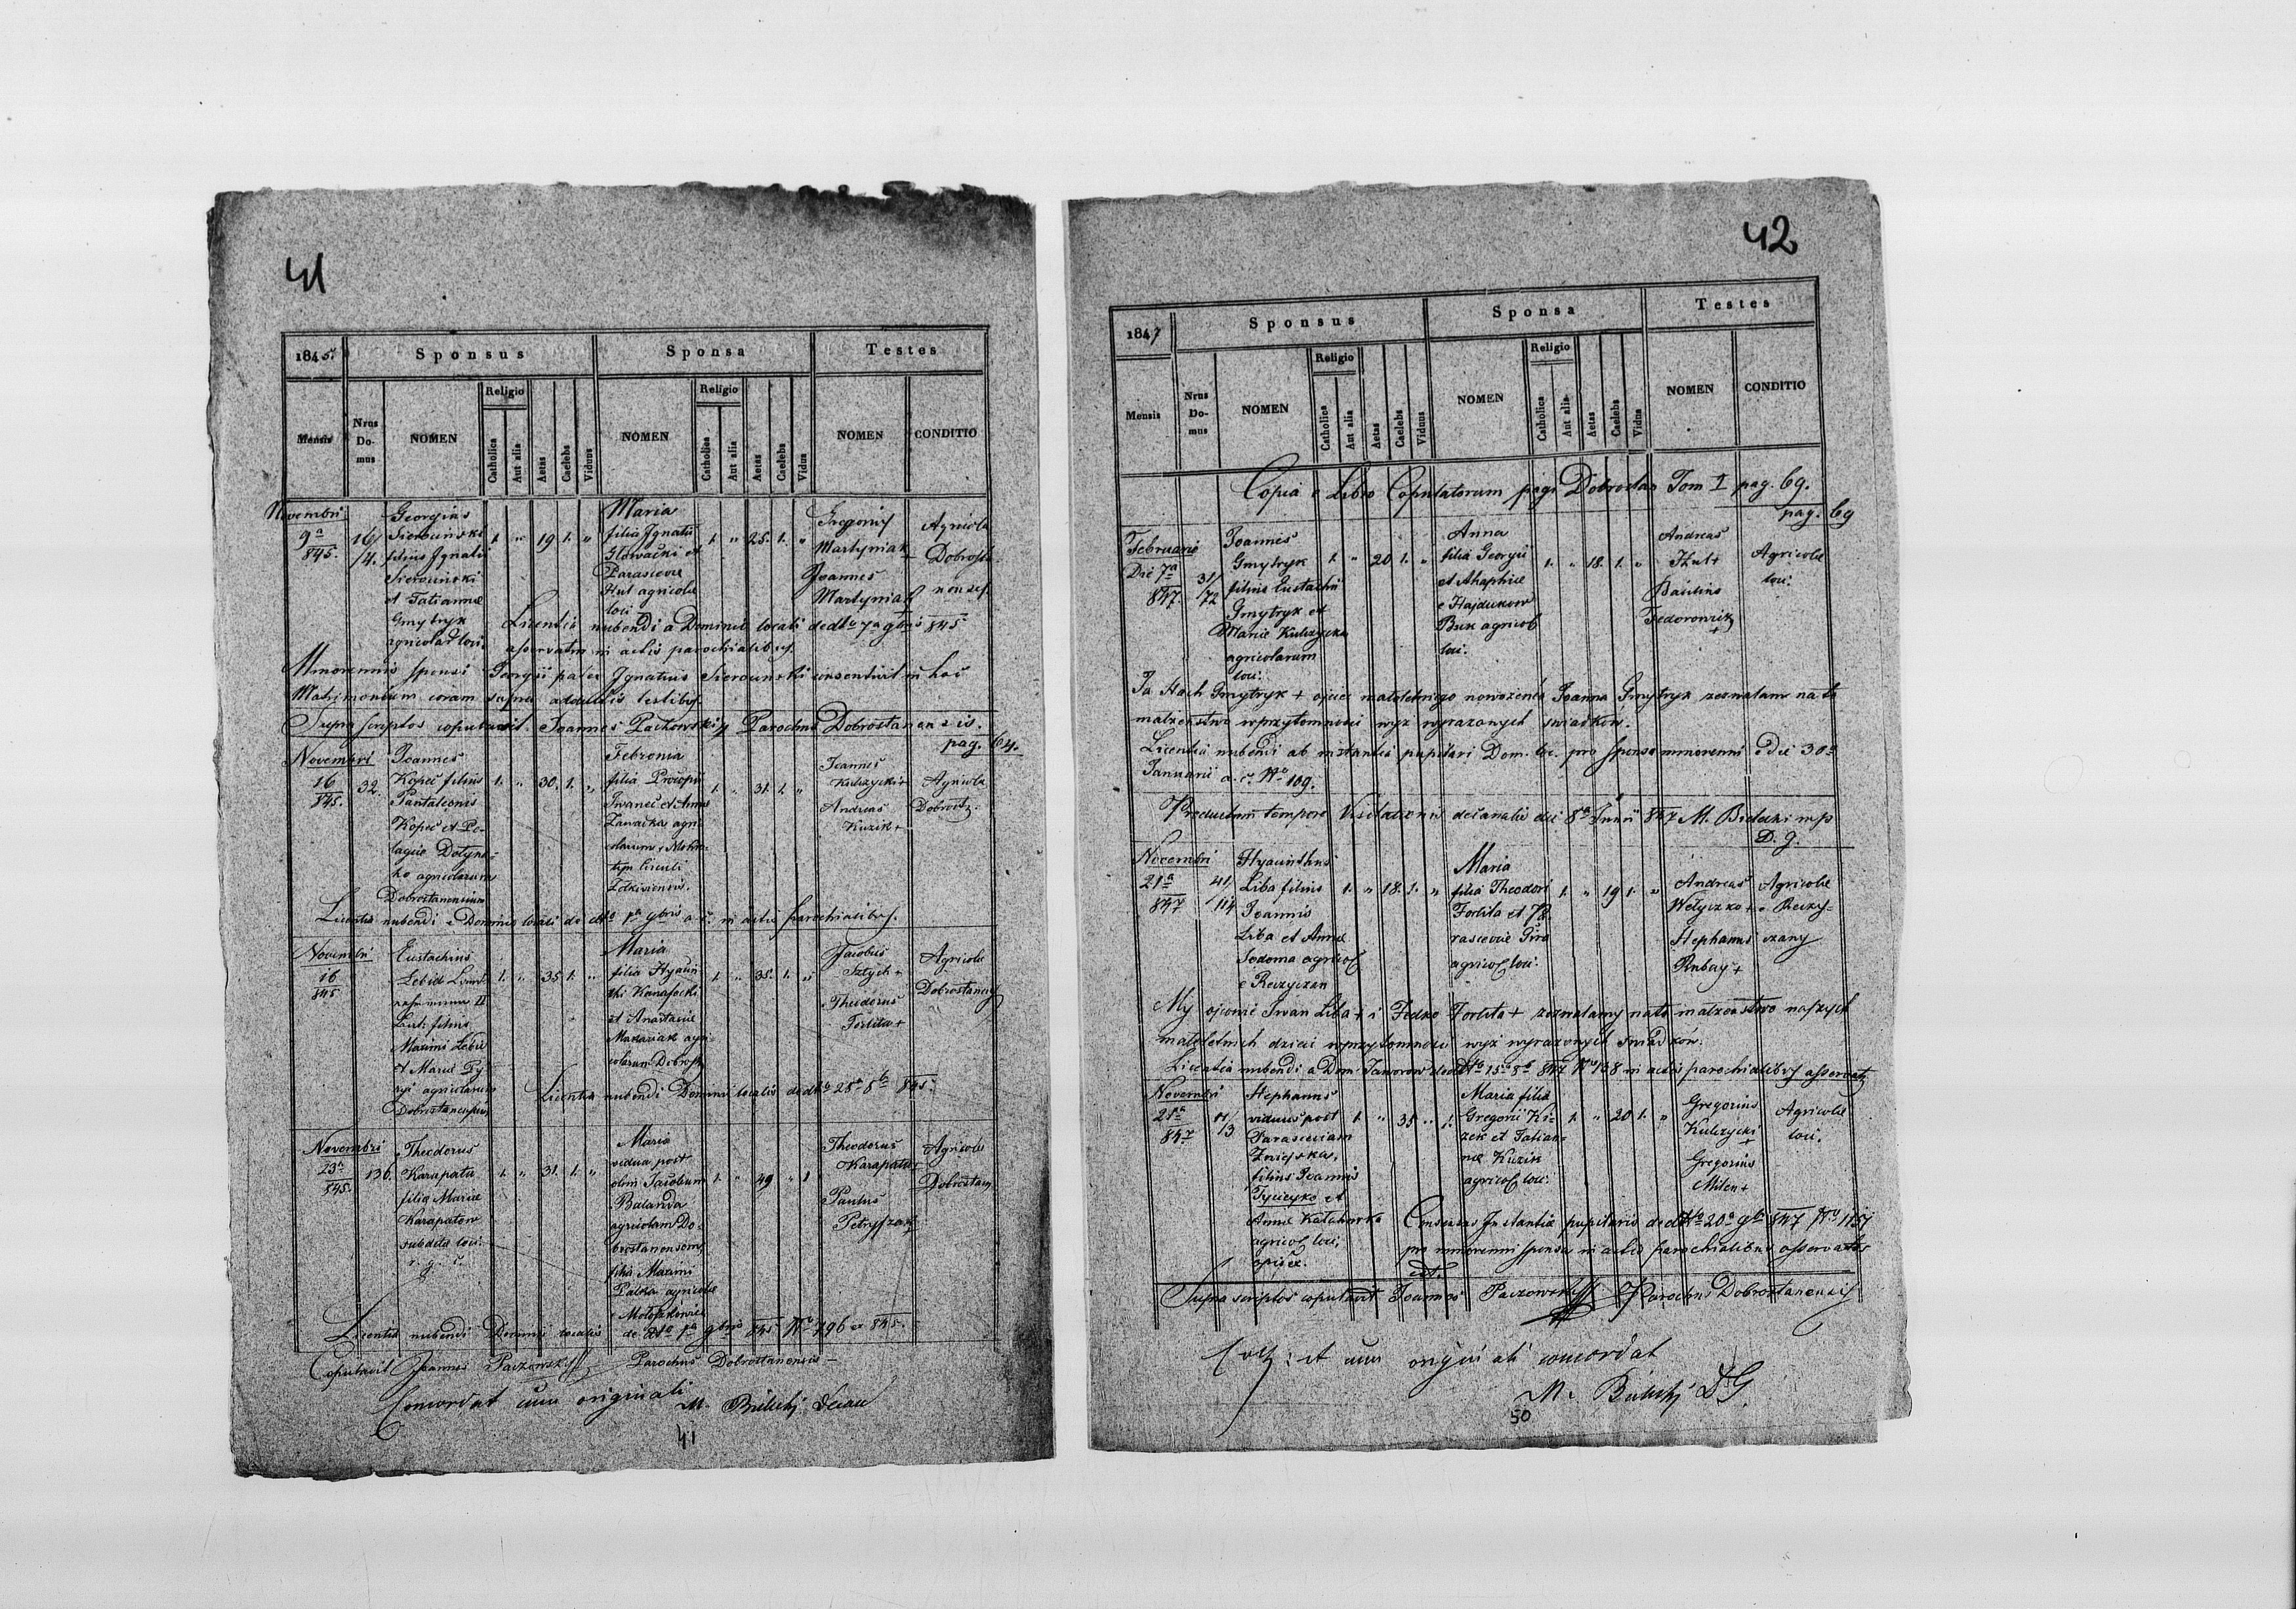 41
1845.
Sponsus
Sponsa
Testes
Mensis
Nrus Do-mus
NOMEN
Religio
Catholica
Aut alia
Aetas
Caelebs
Viduus
NOMEN
Religio
Catholica
Aut alia
Aetas
Caelebs
Vidua
NOMEN
CONDITIO
Novembri
9a
845.
16/4.
Georgius
Sierounski
filius Ignatii
Sierounski
et Tatianna
Gmytryk
agricolar loci.
1. " 19 1. "
Maria
filia Ignatii
Głowacki et
Parascevae
Hut agricolae
loci
1. " 25. 1. "
Gregorius
Martyniak +
Joannes
Martyniak +
Agricolae
Licentia nubendi a Dominio locali de dto 7a 9bris 845
asservatur in actis parochialibus.
Minorennis sponsi Georgii pater Ignatius Sierounski consentivit in hoc
Matrimonium coram supra adductis testibus.
Supra scriptos copulavit Joannes Paczowski Parochus Dobrostanensis.
pag. 64.
Novembri
16
845.
32.
Joannes
Kopeć filius
Pantaleonis
Kopeć et Pe-
lagiae
agricolarum
Dobrostanensium
1. " 30. 1. "
Febronia
filia Procopii
Iwaneć et Annae
Zawacka agri-
colarum e
Circuli
Żołkieviensis.
1. " 31. 1. "
Joannes
Kulczycki +
Andreas
Kuzik +
Agricolae
Dobrostz.
Licentia nubendi e Dominio locali de dto 1a 9bris a. c. in actis parochialibus.
Novembri
16
845
Eustachius
Lebid
filius
Maximi Lebid
et Mariae
agricolarum
1. " 35 1. "
Maria
filia Hyacin-
thi
et Anastasiae
Makariak agri-
colarum Dobrost.
1. " 35. 1. "
Jacobus
Sztych +
Theodorus
Fortita +
Agricolae
Licentia nubendi Dominii localis de dto 28a 8bris 845.
Novembri
23a
845.
136.
Theodorus
Karapata
filia Mariae
Karapatow
subdita loci.
1. " 31. 1. "
Maria
vidua post
olim Jacobum
Balanda
agricolam Do-
brostanensem,
filia Maximi
agricolae
1. " 49 " 1
Theodorus
Karapata +
Paulus
Petryszak +
Agricolae
Licentia nubendi Dominii localis de dto 1a 9bris 845 No 796 ex 845.
Copulavit Joannes Paczowski Parochus Dobrostanensis
Concordat cum originali
41
42
1847
Sponsus
Sponsa
Testes
Mensis
Nrus Do-mus
NOMEN
Religio
Catholica
Aut alia
Aetas
Caelebs
Viduus
NOMEN
Religio
Catholica
Aut alia
Aetas
Caelebs
Vidua
NOMEN
CONDITIO
Copia e Libro Copulatorum pagi Dobrostan Tom I pag. 69.
pag. 69
Februario
Die 7a
847.
31/72
Joannes
Gmytryk
filius Eustachii
Gmytryk et
Mariae Kulczycka
agricolarum
loci.
1. " 20 1. "
Anna
filia Georgii
et Ahaphiae
e Hajdukow
Buk agricol.
loci.
1. " 18. 1. "
Andreas
Hut +
Basilius
Fedorowicz +
Agricolae
loci.
Ja Stach Gmytryk + ojciec małoletniego nowożeńca Joanna Gmytryk zezwalam na to
małżeństwo w przytomności wyż wyrazonych swiadków.
Licentia nubendi ab instantia pupilari Dom. loc. pro sponso minorenni e die 30a
Januarii a. c. No 109.
Productum tempore Visitationis decanalis die 8a Junii 847 M. Bielecki mp
D. g.
Novembri
21a
847
41/114
Hyacinthus
Liba filius
Joannis
Liba et Annae
Sodoma agricol.
e Reczyczan
1. " 18. 1. "
Maria
filia Theodori
Fortita et Pa-
rasceviae
agricol. loci.
1. " 19 1. "
Andreas
Wełyczko +
Stephanus
Rubay +
Agricolae
e Reczy-
czany
My ojcowie Iwan Liba + i Fedko Fortita + zezwalamy na to małżeństwo naszych
małoletnich dzieci w przytomności wyż wyrazonych swiadków.
Licentia nubendi a Dom. Jaworow de dto 15a 8b. 847 No 158 in actis parochialibus asservatur
Novembri
21a
847
Stephanus
viduus post
Parasceviam
filius Joannis
et
Annae
agricol. loci,
1. " 35 " 1.
Maria filia
Gregorii Ki-
zek et Tatian-
nae Kuzik
agricol. loci.
1. " 20 1. "
Gregorius
Kulczycki +
Gregorius
Milen +
Agricolae
loci.
Consensus Instantiae pupilaris de dto 20a 9b. 847
pro minorenni sponsa in actis parochialibus asservatur
Supra scriptos copulavit Joannes Paczowski Parochus Dobrostanensis
et cum originali concordat
50